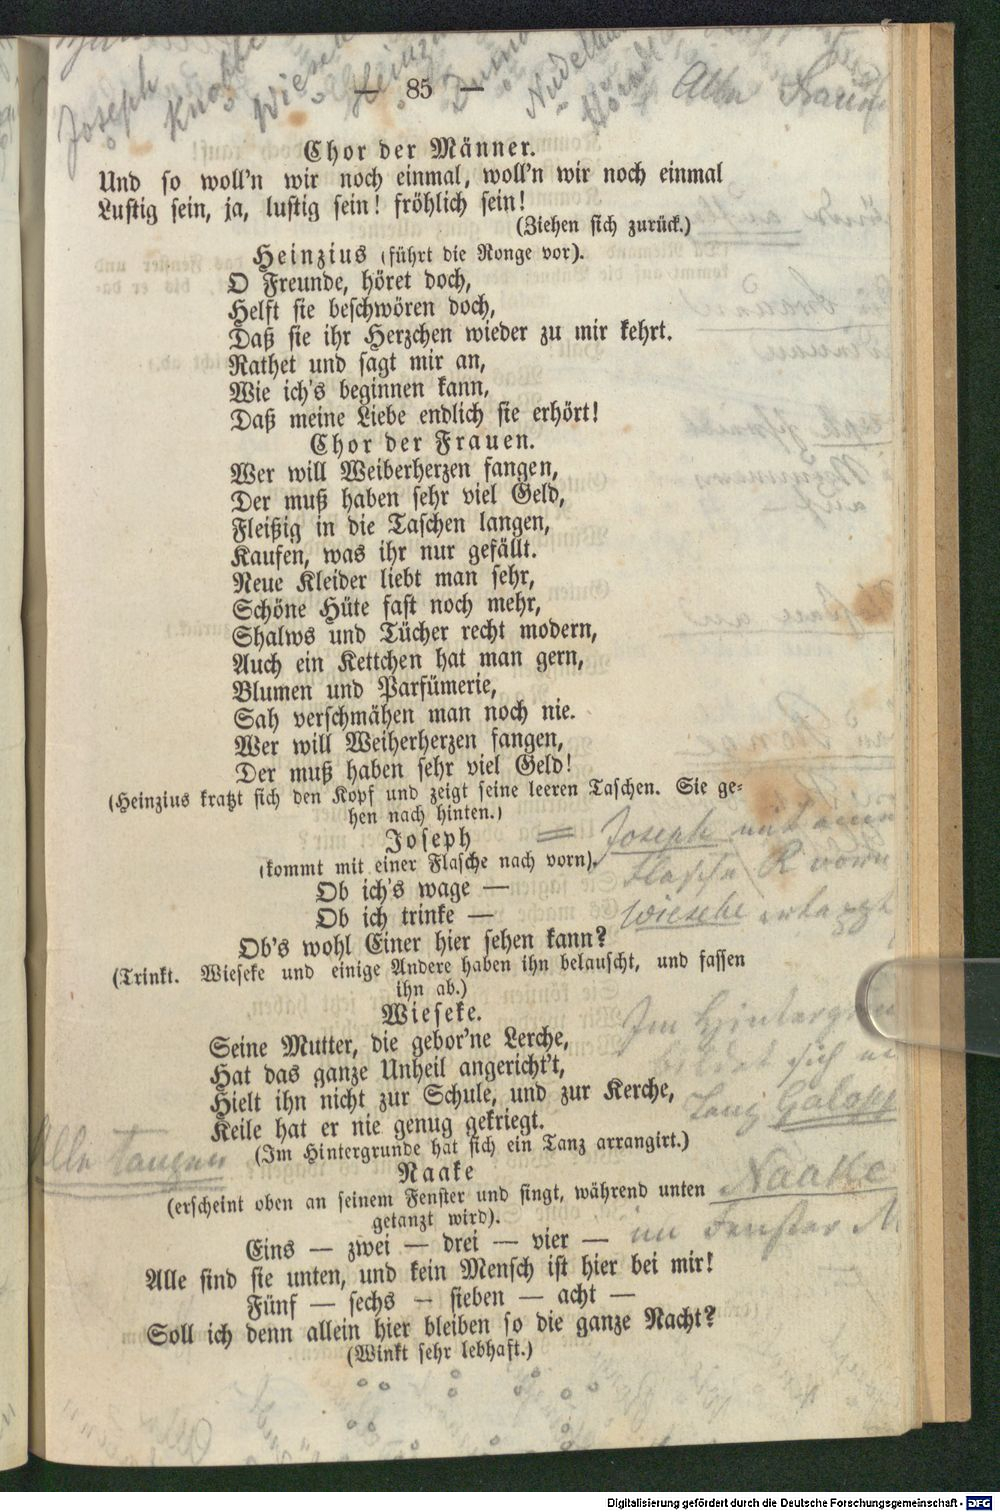 Joseph Knabbe Wiesek Heinz
— 85 —
Alle Frauen
Chor der Männer.
Und so woll'n wir noch einmal, woll'n wir noch einmal
Lustig sein, ja, lustig sein! fröhlich sein!
(Ziehen sich zurück.)
Heinzius (führt die Ronge vor).
O Freunde, höret doch,
Helft sie beschwören doch,
Daß sie ihr Herzchen wieder zu mir kehrt.
Rathet und sagt mir an,
Wie ich's beginnen kann,
Daß meine Liebe endlich sie erhört!
Chor der Frauen.
Wer will Weiberherzen fangen,
Der muß haben sehr viel Geld,
Fleißig in die Taschen langen,
Kaufen, was ihr nur gefällt.
Neue Kleider liebt man sehr,
Schöne Hüte fast noch mehr,
Shalws und Tücher recht modern,
Auch ein Kettchen hat man gern,
Blumen und Parfümerie,
Sah verschmähen man noch nie.
Wer will Weiherherzen fangen,
Der muß haben sehr viel Geld!
(Heinzius kratzt sich den Kopf und zeigt seine leeren Taschen. Sie ge-
hen nach hinten.)
Joseph
(kommt mit einer Flasche nach vorn).
Joseph mit einer
Flasche R vorn
Ob ich's wage —
Ob ich trinke —
Wieseke ertappt
Ob's wohl Einer hier sehen kann?
(Trinkt. Wieseke und einige Andere haben ihn belauscht, und fassen
ihn ab.)
Wieseke.
Seine Mutter, die gebor'ne Lerche,
Hat das ganze Unheil angericht't,
Hielt ihn nicht zur Schule, und zur Kerche,
Keile hat er nie genug gekriegt.
Im Hintergrun
bildet sich ein
Tanz Galopp
Alle tanzen
(Im Hintergrunde hat sich ein Tanz arrangirt.)
Naake
(erscheint oben an seinem Fenster und singt, während unten
getanzt wird).
Naake
im Fenster M
Eins — zwei — drei — vier —
Alle sind sie unten, und kein Mensch ist hier bei mir!
Fünf — sechs — sieben — acht —
Soll ich denn allein hier bleiben so die ganze Nacht?
(Winkt sehr lebhaft.)
Digitalisierung gefördert durch die Deutsche Forschungsgemeinschaft - DFG